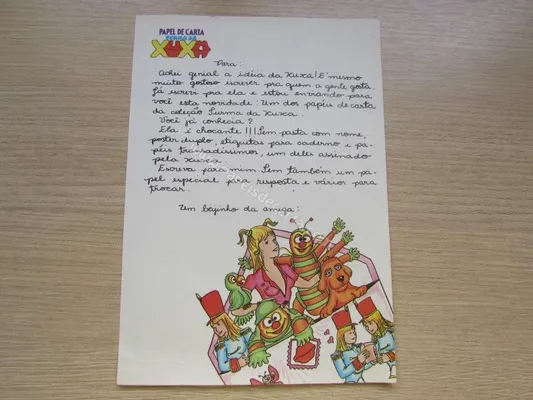 PAPEL DE CARTA
TURMA DA
XUXA
Para:
Achei genial a idéia da Xuxa! E' mesmo
muito gostoso escrever pra quem a gente gosta.
Já escrevi pra ela e estou enviando para
você esta novidade: Um dos papéis de carta
da coleção Turma da Xuxa.
Você já conhecia?
Ela é chocante!!! Tem pasta com nome,
poster duplo, etiquetas para caderno e pa-
péis transadíssimos, um deles assinado
pela Xuxa.
Escreva para mim. Tem também um pa-
pel especial para resposta e vários para
trocar.
Um beijinho da amiga: